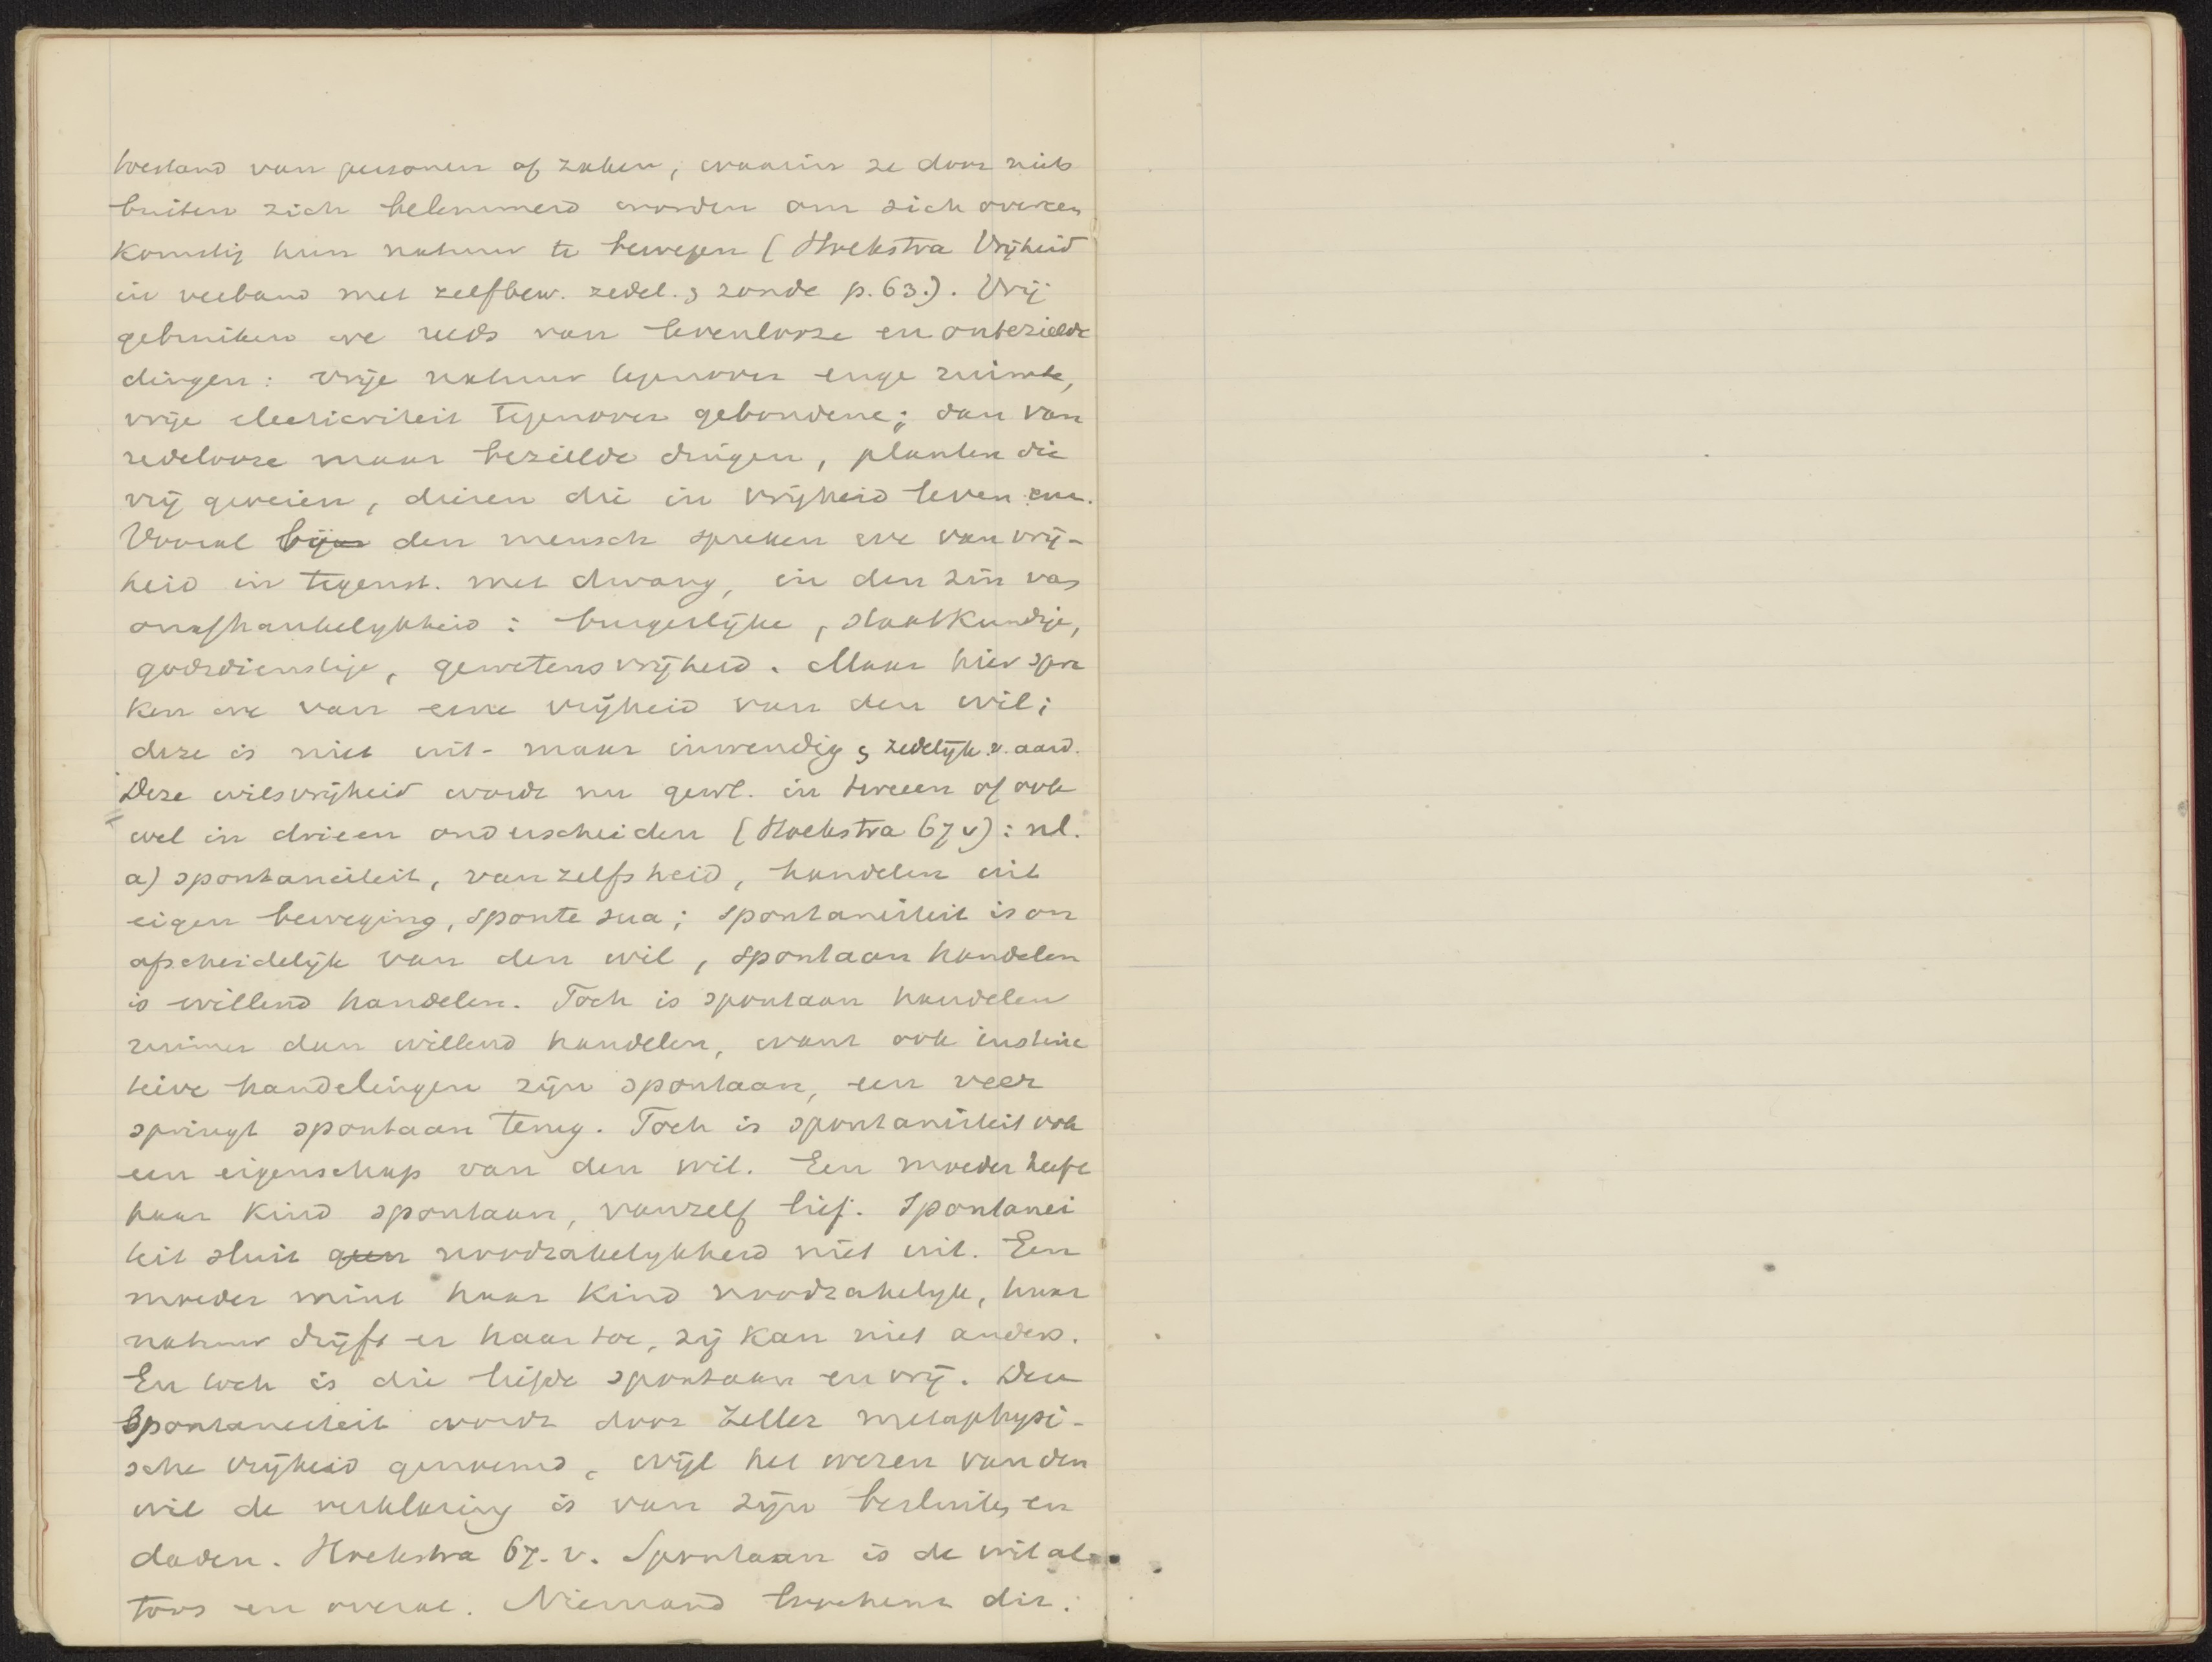 toestand van personen of zaken, waarin ze door niets
buiten zich belemmerd worden om zich overeen
komstig hun natuur te bewegen (Hoekstra Vrijheid
in verband met zelfbew. zedel. & zonde p. 63.). Vrij
gebruiken we reeds van levenlooze en onbezielde
dingen: vrije natuur tegenover enge ruimte,
vrije electriciteit tegenover gebondene; dan van
redelooze maar bezielde dingen, planten die
vrij groeien, dieren die in vrijheid leven enz.
Vooral bij den mensch spreken we van vrij-
heid in tegenst. met dwang, in den zin van
onafhankelijkheid: burgerlijke, staatkundige,
godsdienstige, gewetensvrijheid. Maar hier spre
ken we van eene vrijheid van den wil;
deze is niet uit- maar inwendig & zedelijk v. aard.
Deze wilsvrijheid wordt nu gewl. in tweeen of ook
wel in drieen onderscheiden (Hoekstra 67 v): nl.
a) spontaneiteit, vanzelfsheid, handelen uit
eigen beweging, sponte sua; spontaneiteit is on
afscheidelijk van den wil, spontaan handelen
is willend handelen. Toch is spontaan handelen
ruimer dan willend handelen, want ook instinc
tieve handelingen zijn spontaan, een veer
springt spontaan terug. Toch is spontaneiteit ook
een eigenschap van den wil. Een moeder heeft
haar kind spontaan, vanzelf lief. Spontanei
teit sluit geen noodzakelijkheid niet uit. Een
moeder mint haar kind noodzakelijk, haar
natuur drijft er haar toe, zij kan niet anders.
En toch is die liefde spontaan en vrij. Deze
Spontaneiteit wordt door Zeller metaphysi-
sche vrijheid genoemd, wijl het wezen van den
wil de verklaring is van zijn besluiten en
daden. Hoekstra 67. v. Spontaan is de wil al
toos en overal. Niemand loochent dit.